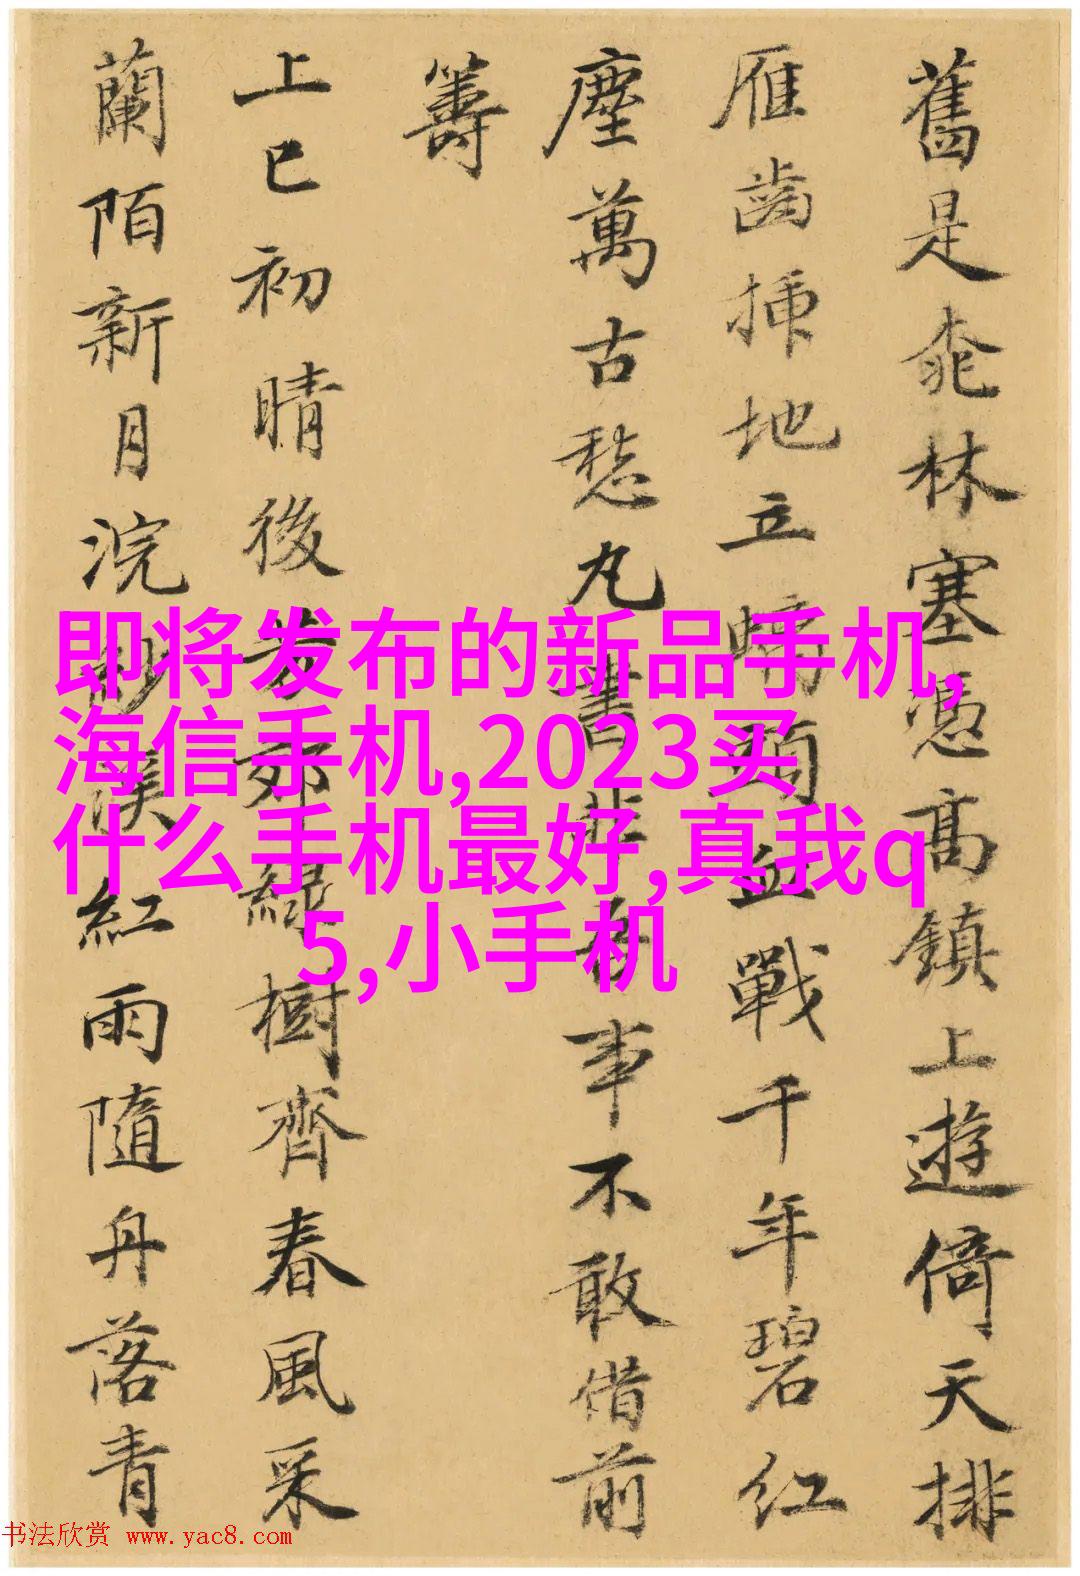 舊是桃林塞憑高鎮上遊倚天排
雁齒插地立頭血戰千年碧紅
塵萬古愁丸書非吾事不敢借前
籌
上巳初晴後芳郊綠樹齊春風采
蘭陌新月浣溪紅雨隨舟落青
即将发布的新品手机,
海信手机,2023买
什么手机最好,真我q
5,小手机
书法欣赏 www.yac8.com